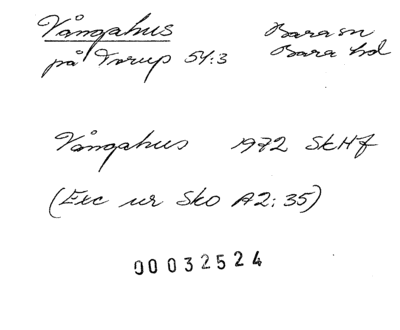 Vångahus Bara sn
på Torup 54:3 Bara hd
Vångahus 1972 SkHf
(Exc ur Sko A2:35)
00032524